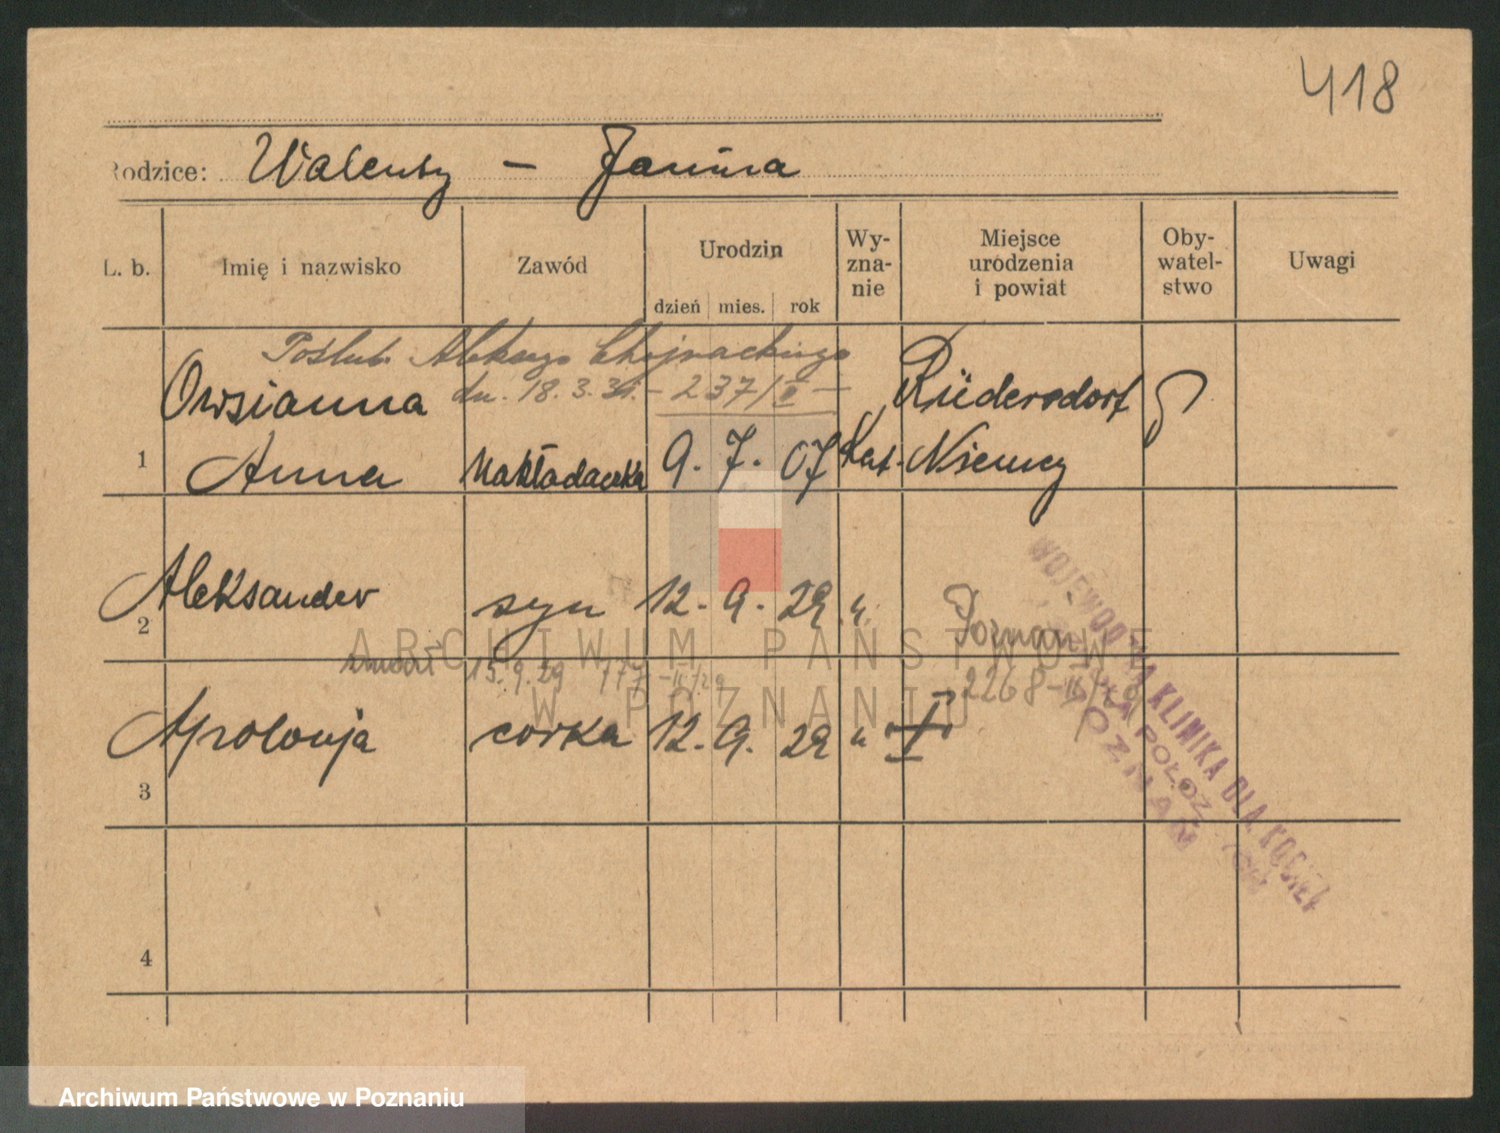 418
Rodzice: Walenty - Janina
L. b. Imię i nazwisko Zawód Urodzin dzień mies. rok Wy-zna-nie Miejsce urodzenia i powiat Oby-watel-stwo Uwagi
Poślub. Aleksego Chojnackiego
dn. 18.3.31. - 237/II -
Owsianna Rüdersdorf
1 Anna Nakładaczka 9. 7. 07 Kat. Niemcy
2 Aleksander syn 12. 9. 29 " Poznań
zmarł 15.9.29 2268
3 Apolonja córka 12. 9. 29 "
4
WOJEWÓDZKA KLINIKA DLA KOBIET
POŁOŻ
POZNAŃ
ARCHIWUM PAŃSTWOWE
W POZNANIU
Archiwum Państwowe w Poznaniu